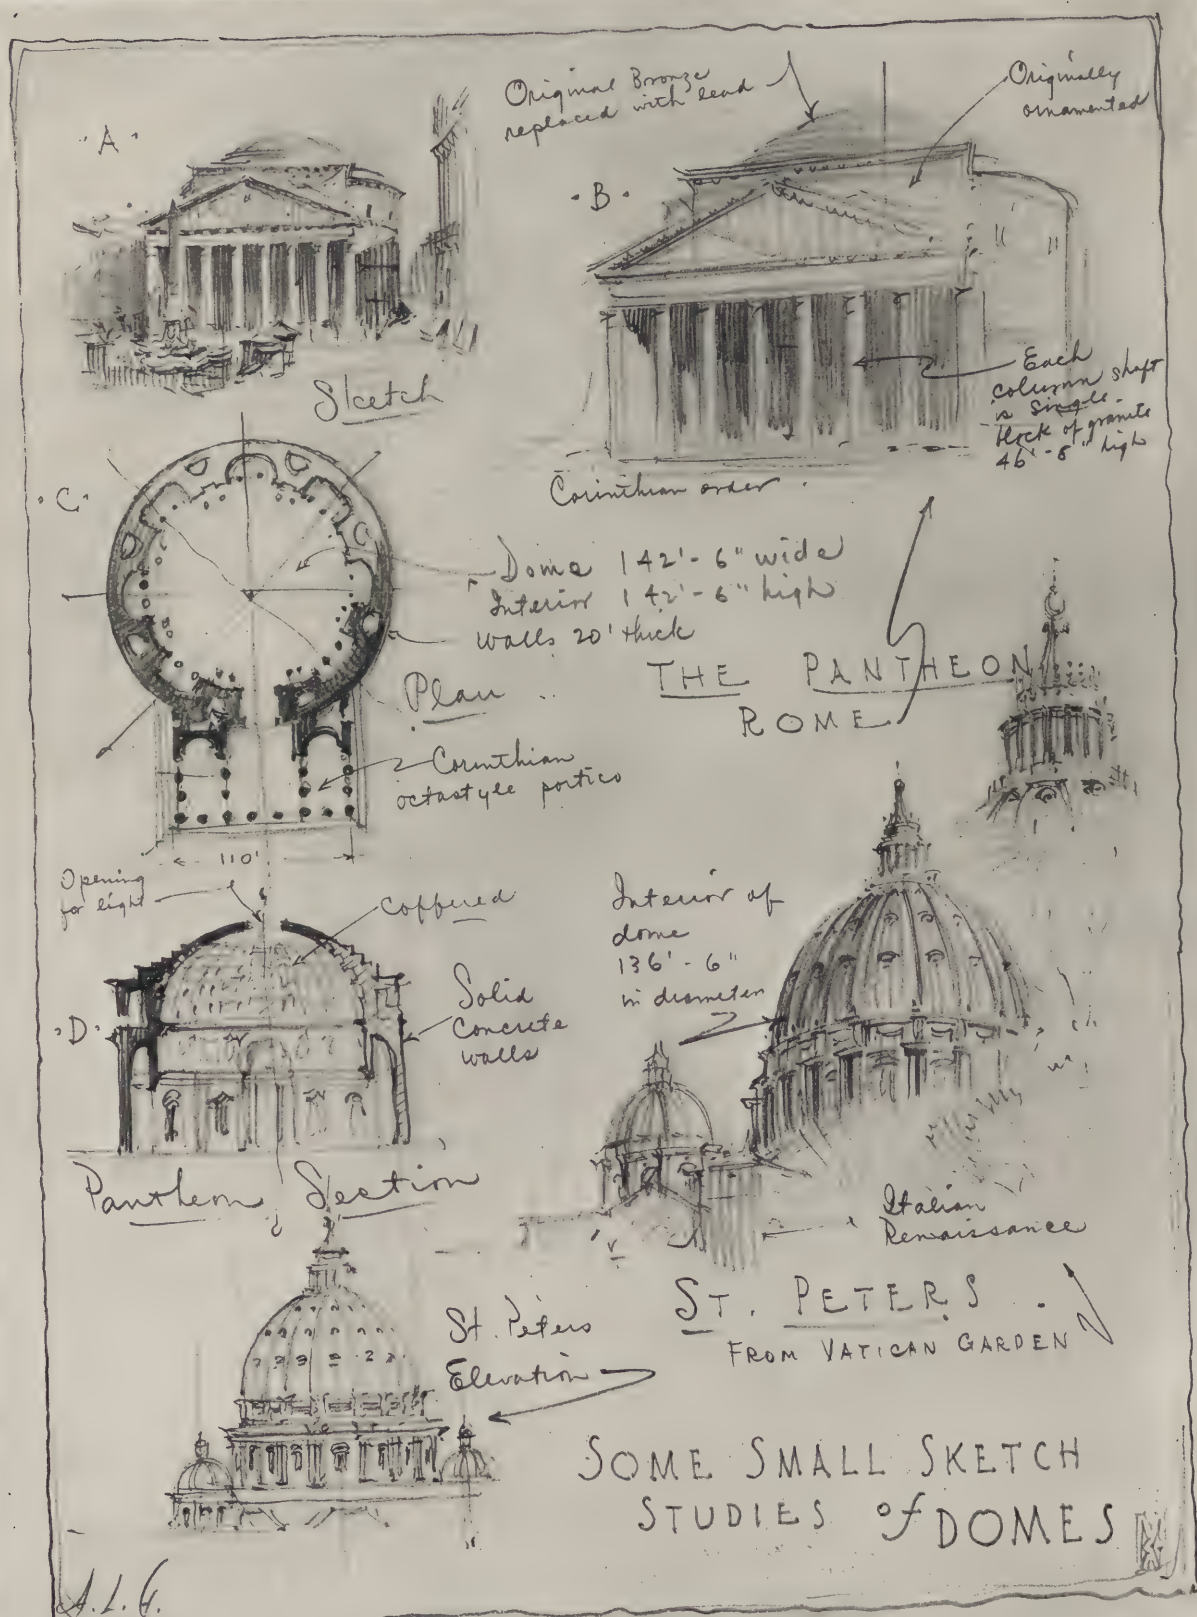 · A ·
Original Bronze
replaced with lead
Originally
ornamented
· B ·
Sketch
Each
column shaft
is single
block of granite
46'-8" high
Corinthian order .
· C ·
Dome 142'-6" wide
Interior 142'-6" high
walls 20' thick
Plan ..
THE PANTHEON
ROME
Corinthian
octastyle portico
110'
Opening
for light
coffered
Interior of
dome
136'-6"
in diameter
· D ·
Solid
Concrete
walls
Pantheon Section
Italian
Renaissance
ST. PETERS .
FROM VATICAN GARDEN
St. Peters
Elevation
SOME SMALL SKETCH
STUDIES of DOMES
A.L.G.